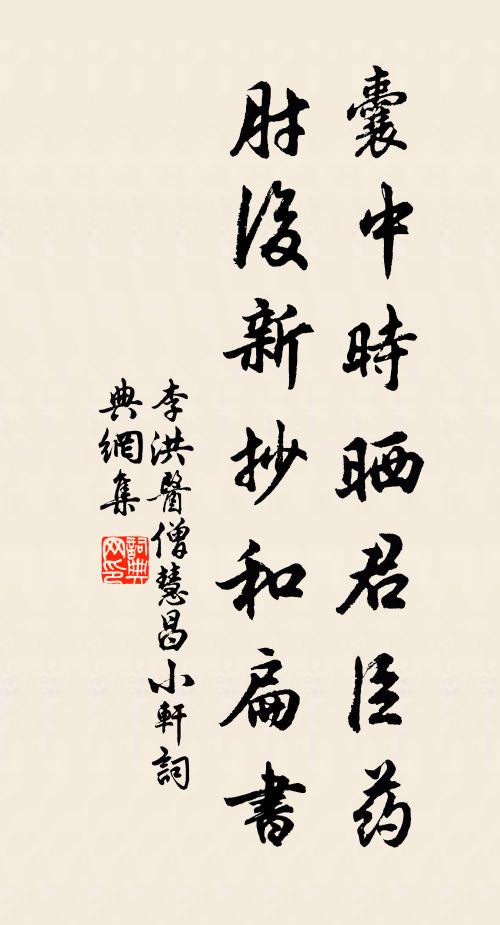 囊中時晒君臣药
肘後新抄和扁書
李洪醫僧慧昌小軒詞
典網集
詞典
网印